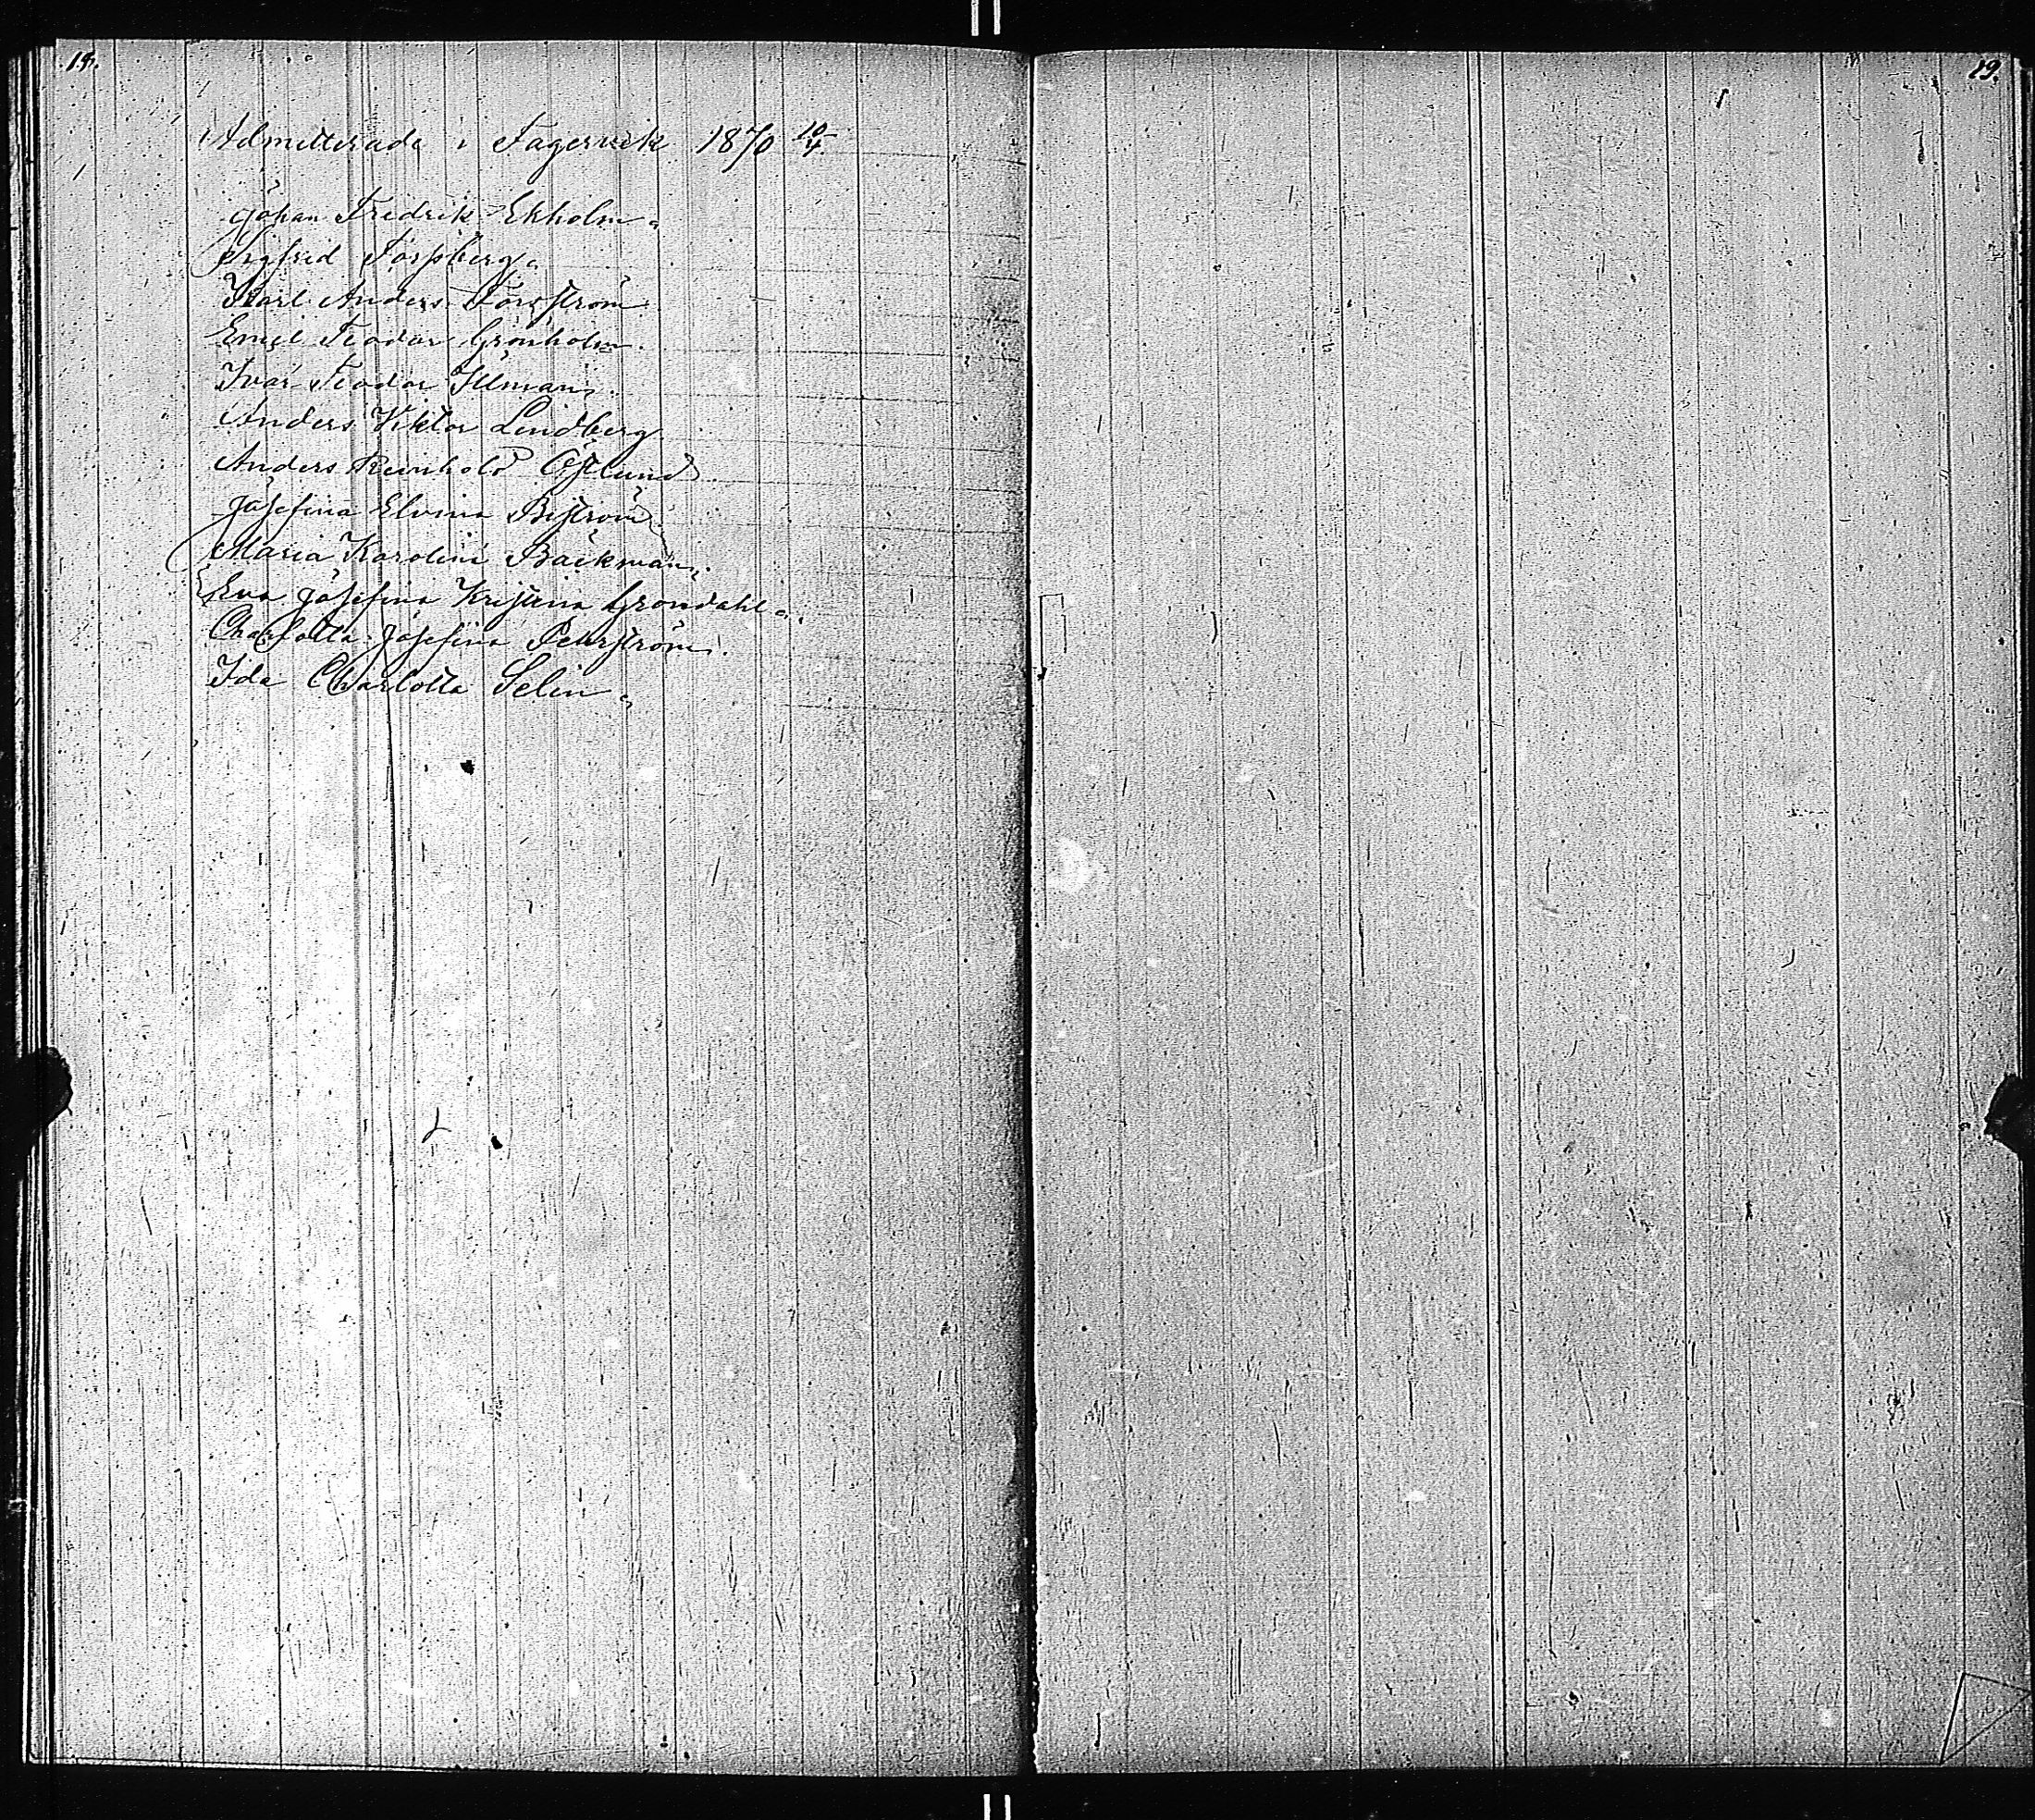 19.
Admitterade i Fagervik 1870 10/4.
Johan Fredrik Ekholm.
Sigfrid Forsberg.
Karl Anders Forsström
Emil Feodor Grönholm.
Ivar Feodor Illman.
Anders Viktor Lindberg.
Anders Reinhold Östlund
Josefina Elvina Biström.
Maria Karolina Backman.
Eva Josefina Kristina Gröndahl.
Charlotta Josefina Pehrström.
Ida Charlotta Selin.